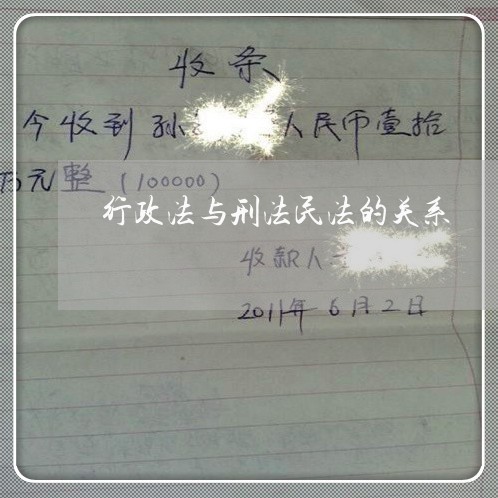 收条
今收到孙 人民币壹拾
万元整(100000)
行政法与刑法民法的关系
收款人
2011年6月2日